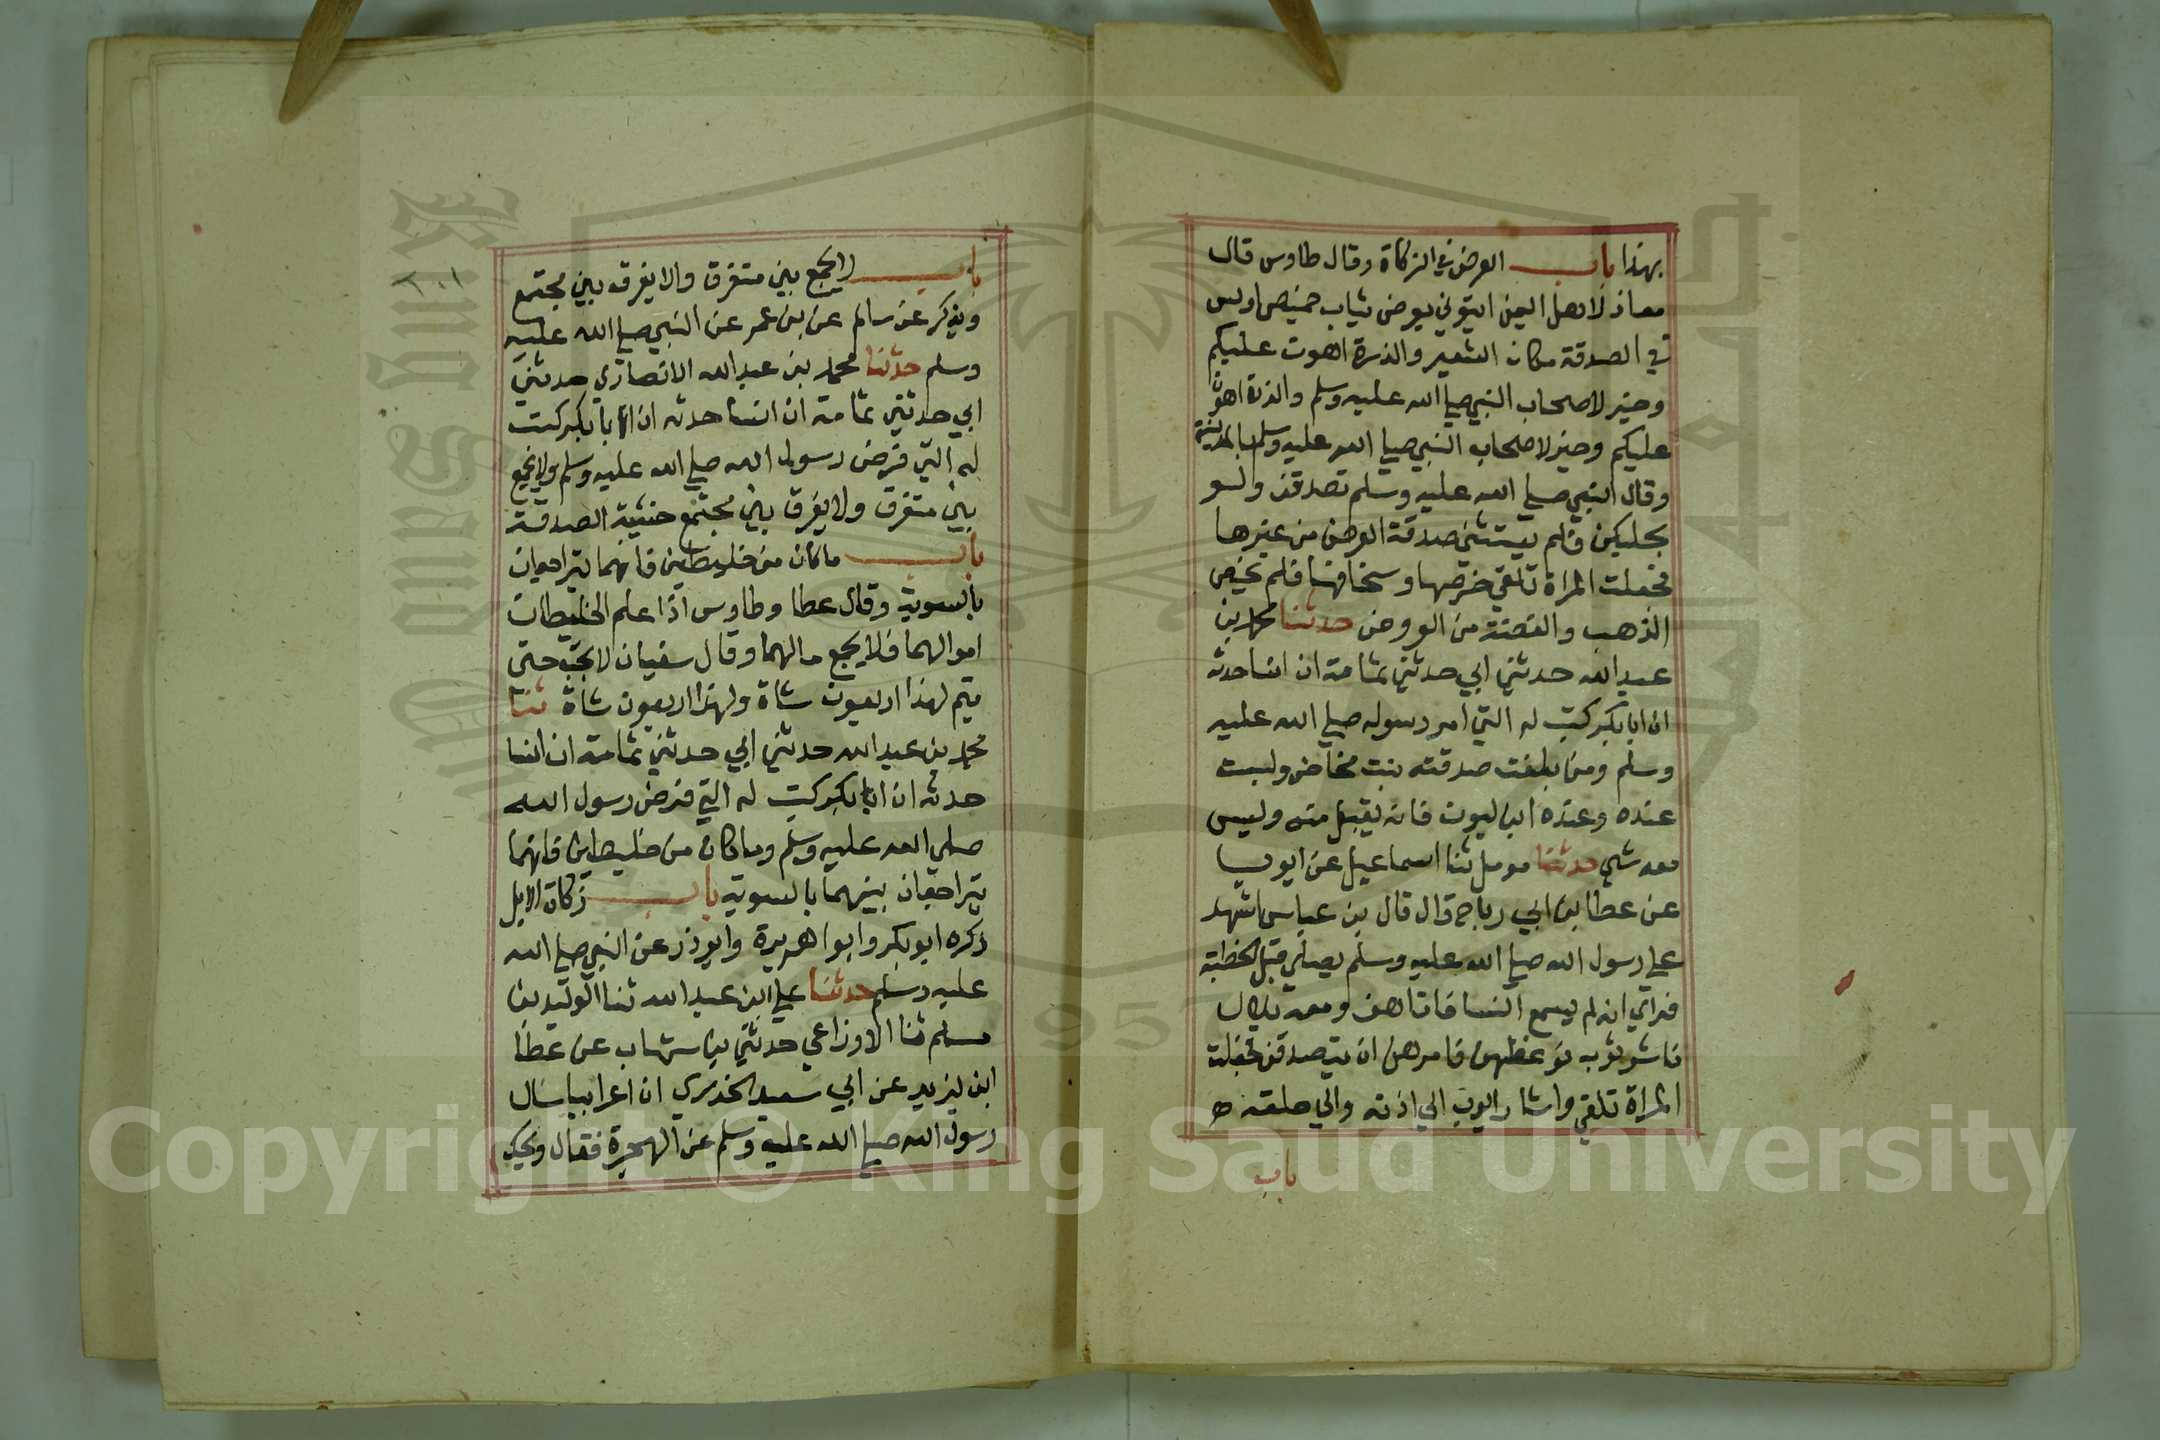 بهذا باب العرض في الزكاة وقال طاوس قال
معاذ لاهل اليمن ايتوني بعرض ثياب خميص او لبس
في الصدقة مكان الشعير والذرة اهون عليكم
وخير لاصحاب النبي صلي الله عليه وسلم والذرة اهون
عليكم وخير لاصحاب النبي صلي الله عليه وسلم بالمدينة
وقال النبي صلي الله عليه وسلم تصدقن ولو
بحليكن فلم يستثني صدقة العرض من غيرها
فجعلت المراة تلقي خرصها وسخابها فلم يخص
الذهب والفضة من العروض حدثنا محمد بن
عبد الله حدثني ابي حدثني ثمامة ان انسا حدثه
ان ابا بكر كتب له التي امر رسوله صلي الله عليه
وسلم ومن بلغت صدقته بنت مخاض وليست
عنده وعنده ابن لبون فانه يقبل منه وليس
معه شي حدثنا مومل ثنا اسماعيل عن ايوب
عن عطا بن ابي رباح قال قال بن عباس اشهد
علي رسول الله صلي الله عليه وسلم يصلي قبل الخطبة
فراي انه لم يسمع النسا فاتاهن ومعه بلال
ناشر ثوبه فوعظهن فامرهن ان يتصدقن فجعلت
المراة تلقي واشار ايوب الي اذنه والي حلقه
باب
١٠١
باب لا يجمع بين متفرق والا يفرق بين مجتمع
ويذكر عن سالم عن بن عمر عن النبي صلي الله عليه
وسلم حدثنا محمد بن عبد الله الانصاري حدثني
ابي حدثني ثمامة ان انسا حدثه ان ابا بكر كتب
له التي فرض رسول الله صلي الله عليه وسلم ولا يجمع
بين متفرق ولا يفرق بين مجتمع خشية الصدقة
باب ما كان من خليطين فانهما يتراجعان
بالسوية وقال عطا وطاوس اذا علم الخليطان
اموالهما فلا يجمع مالهما وقال سفيان لا يجب حتي
يتم لهذا اربعون شاة ولهذا اربعون شاة ثنا
محمد بن عبد الله حدثني ابي حدثني ثمامة ان انسا
حدثه ان ابا بكر كتب له التي فرض رسول الله
صلي الله عليه وسلم وما كان من خليطين فانهما
يتراجعان بينهما بالسوية باب زكاة الابل
ذكره ابو بكر وابوا هريرة وابو ذر عن النبي صلي الله
عليه وسلم حدثنا علي ابن عبد الله ثنا الوليد بن
مسلم ثنا الاوزاعي حدثني بن شهاب عن عطا
ابن يزيد عن ابي سعيد الخدري ان اعرابيا سال
رسول الله صلي الله عليه وسلم عن الهجرة فقال ويحك
Copyright © King Saud University